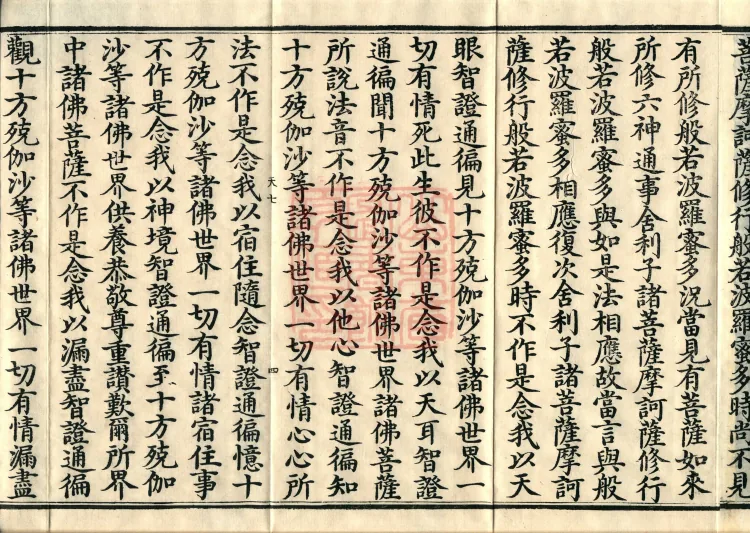 菩薩摩訶薩修行般若波羅蜜多時尚不見
有所修般若波羅蜜多況當見有菩薩如來
所修六神通事舍利子諸菩薩摩訶薩修行
般若波羅蜜多與如是法相應故當言與般
若波羅蜜多相應復次舍利子諸菩薩摩訶
薩修行般若波羅蜜多時不作是念我以天
眼智證通徧見十方殑伽沙等諸佛世界一
切有情死此生彼不作是念我以天耳智證
通徧聞十方殑伽沙等諸佛世界諸佛菩薩
所說法音不作是念我以他心智證通徧知
十方殑伽沙等諸佛世界一切有情心心所
天七
四
法不作是念我以宿住隨念智證通徧憶十
方殑伽沙等諸佛世界一切有情諸宿住事
不作是念我以神境智證通徧至十方殑伽
沙等諸佛世界供養恭敬尊重讚歎爾所界
中諸佛菩薩不作是念我以漏盡智證通徧
觀十方殑伽沙等諸佛世界一切有情漏盡